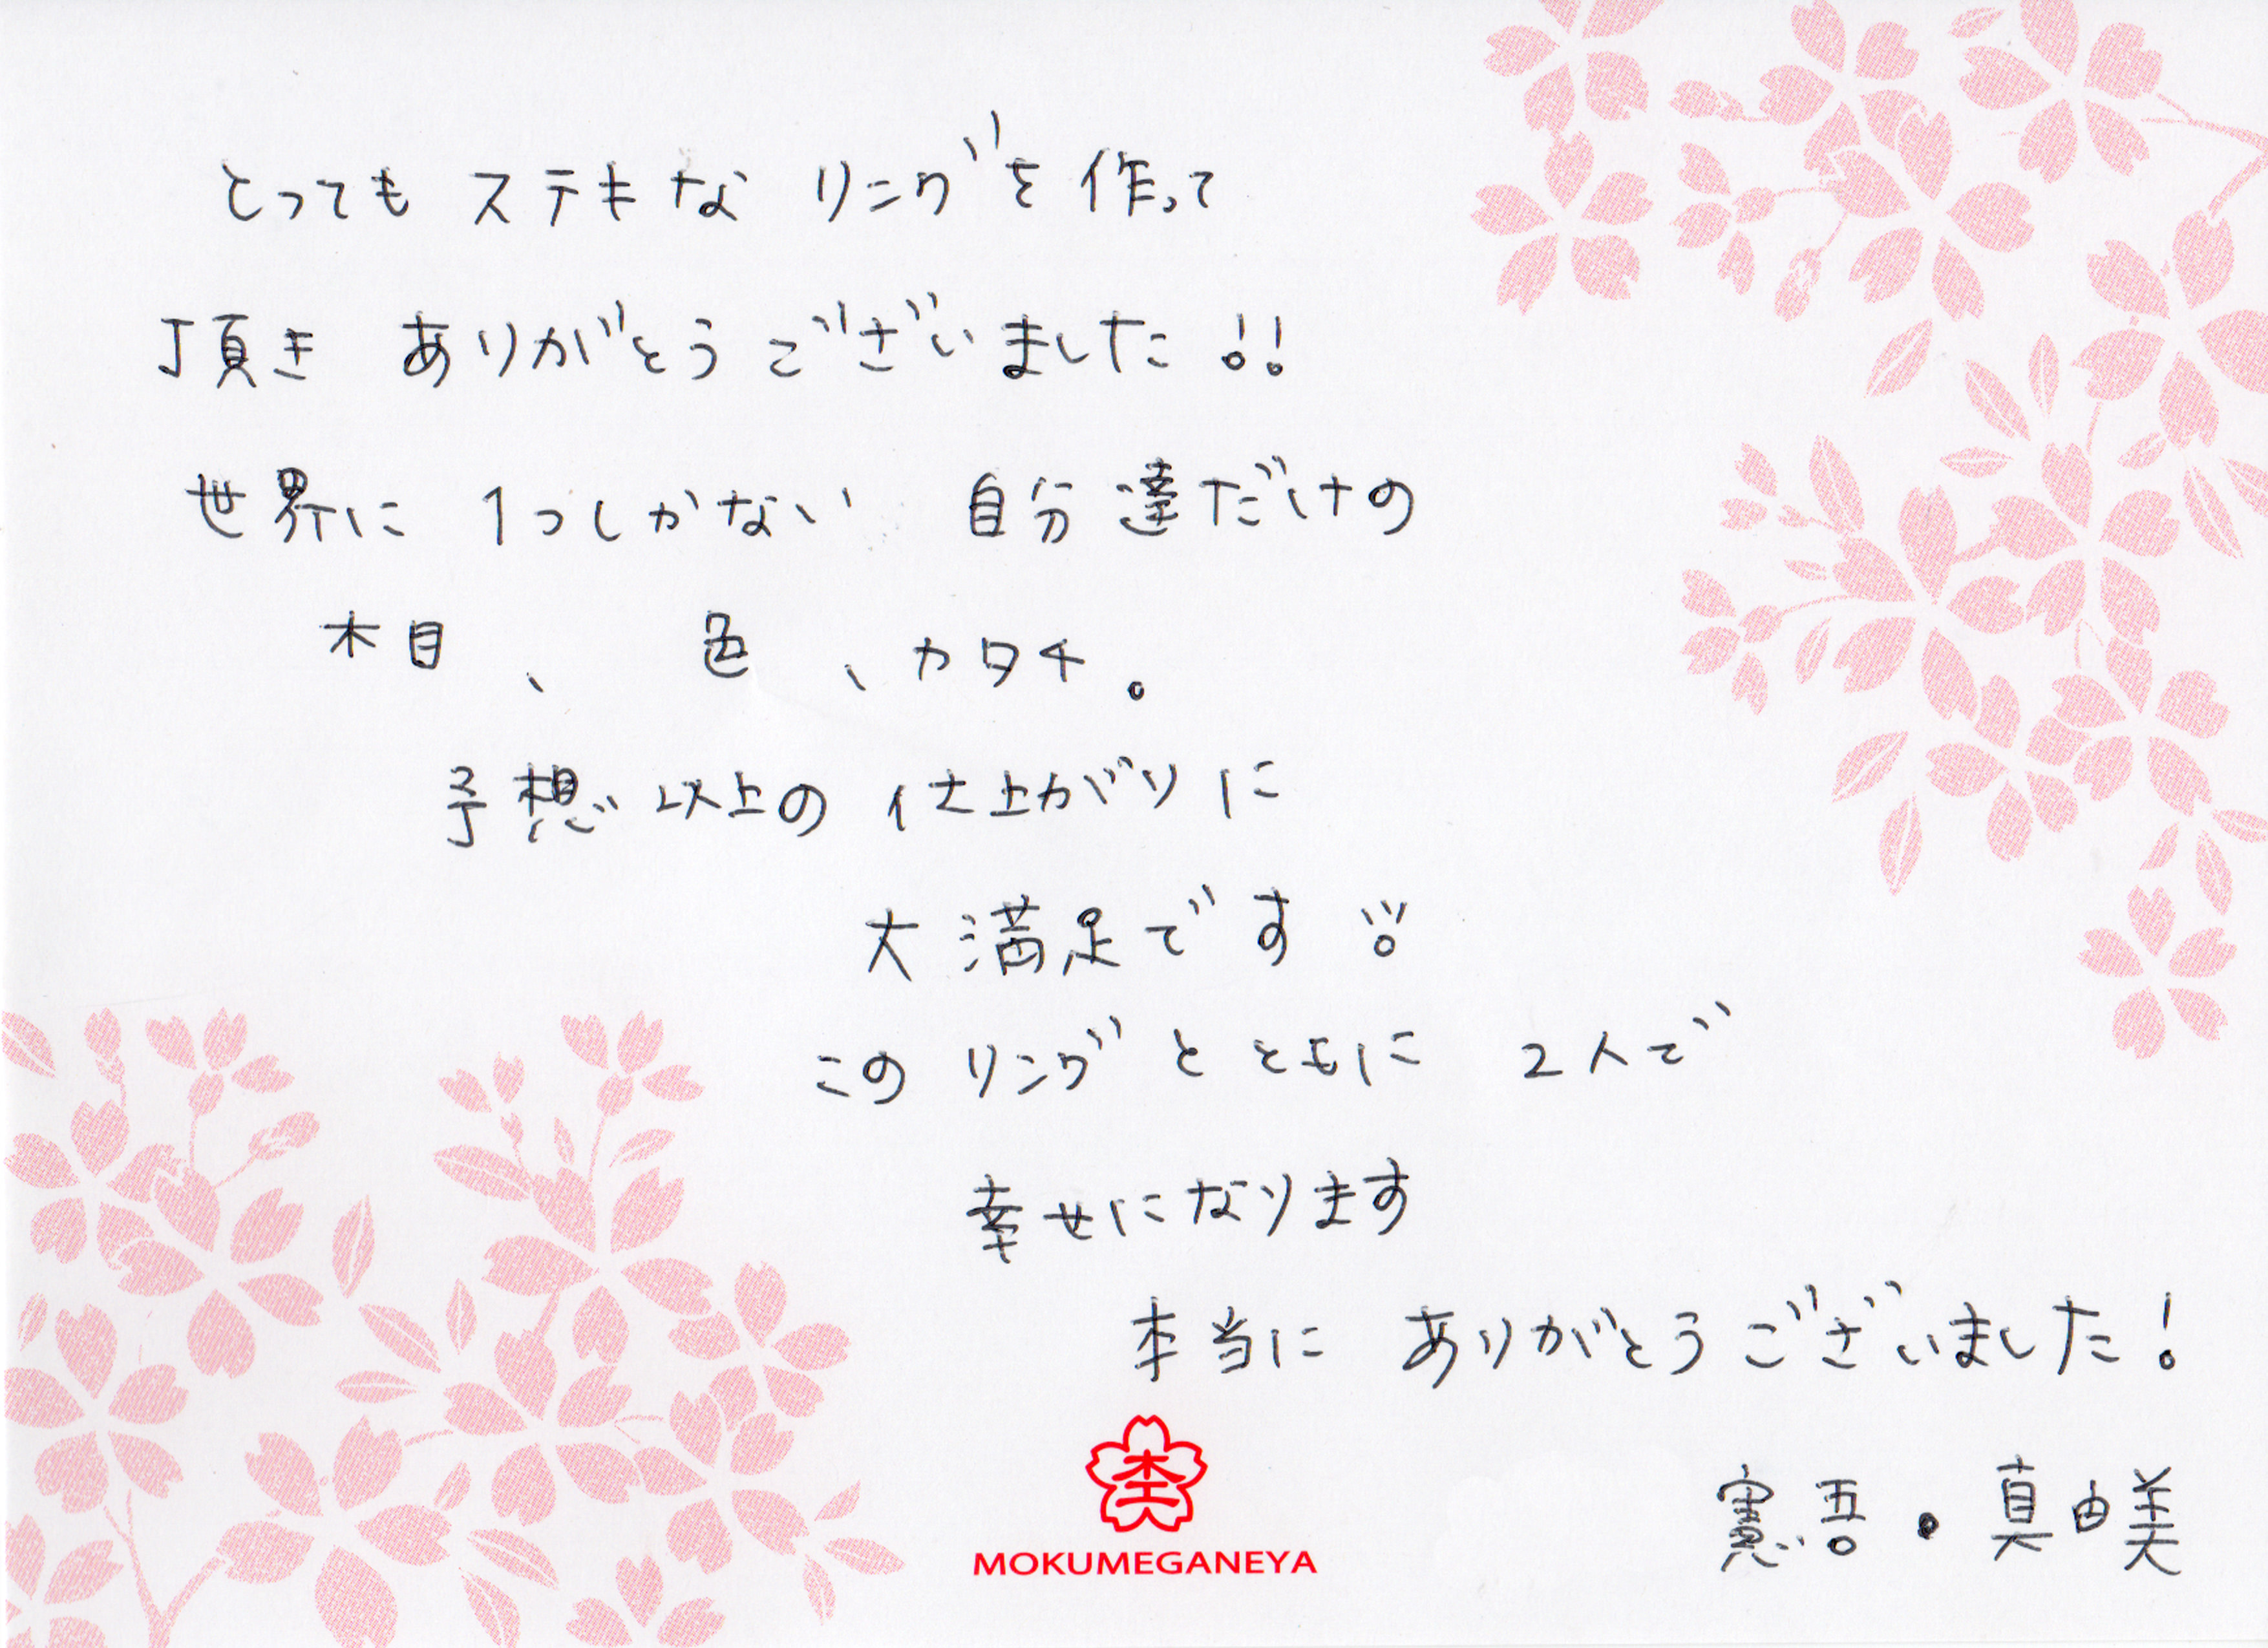 とっても ステキな リングを 作って
頂き ありがとう ございました!!
世界に 1つしかない 自分達だけの
木目、 色、カタチ。
予想以上の 仕上がりに
大満足です!!
この リングと ともに 2人で
幸せになります
本当に ありがとうございました!
憲吾・真由美
杢
MOKUMEGANEYA